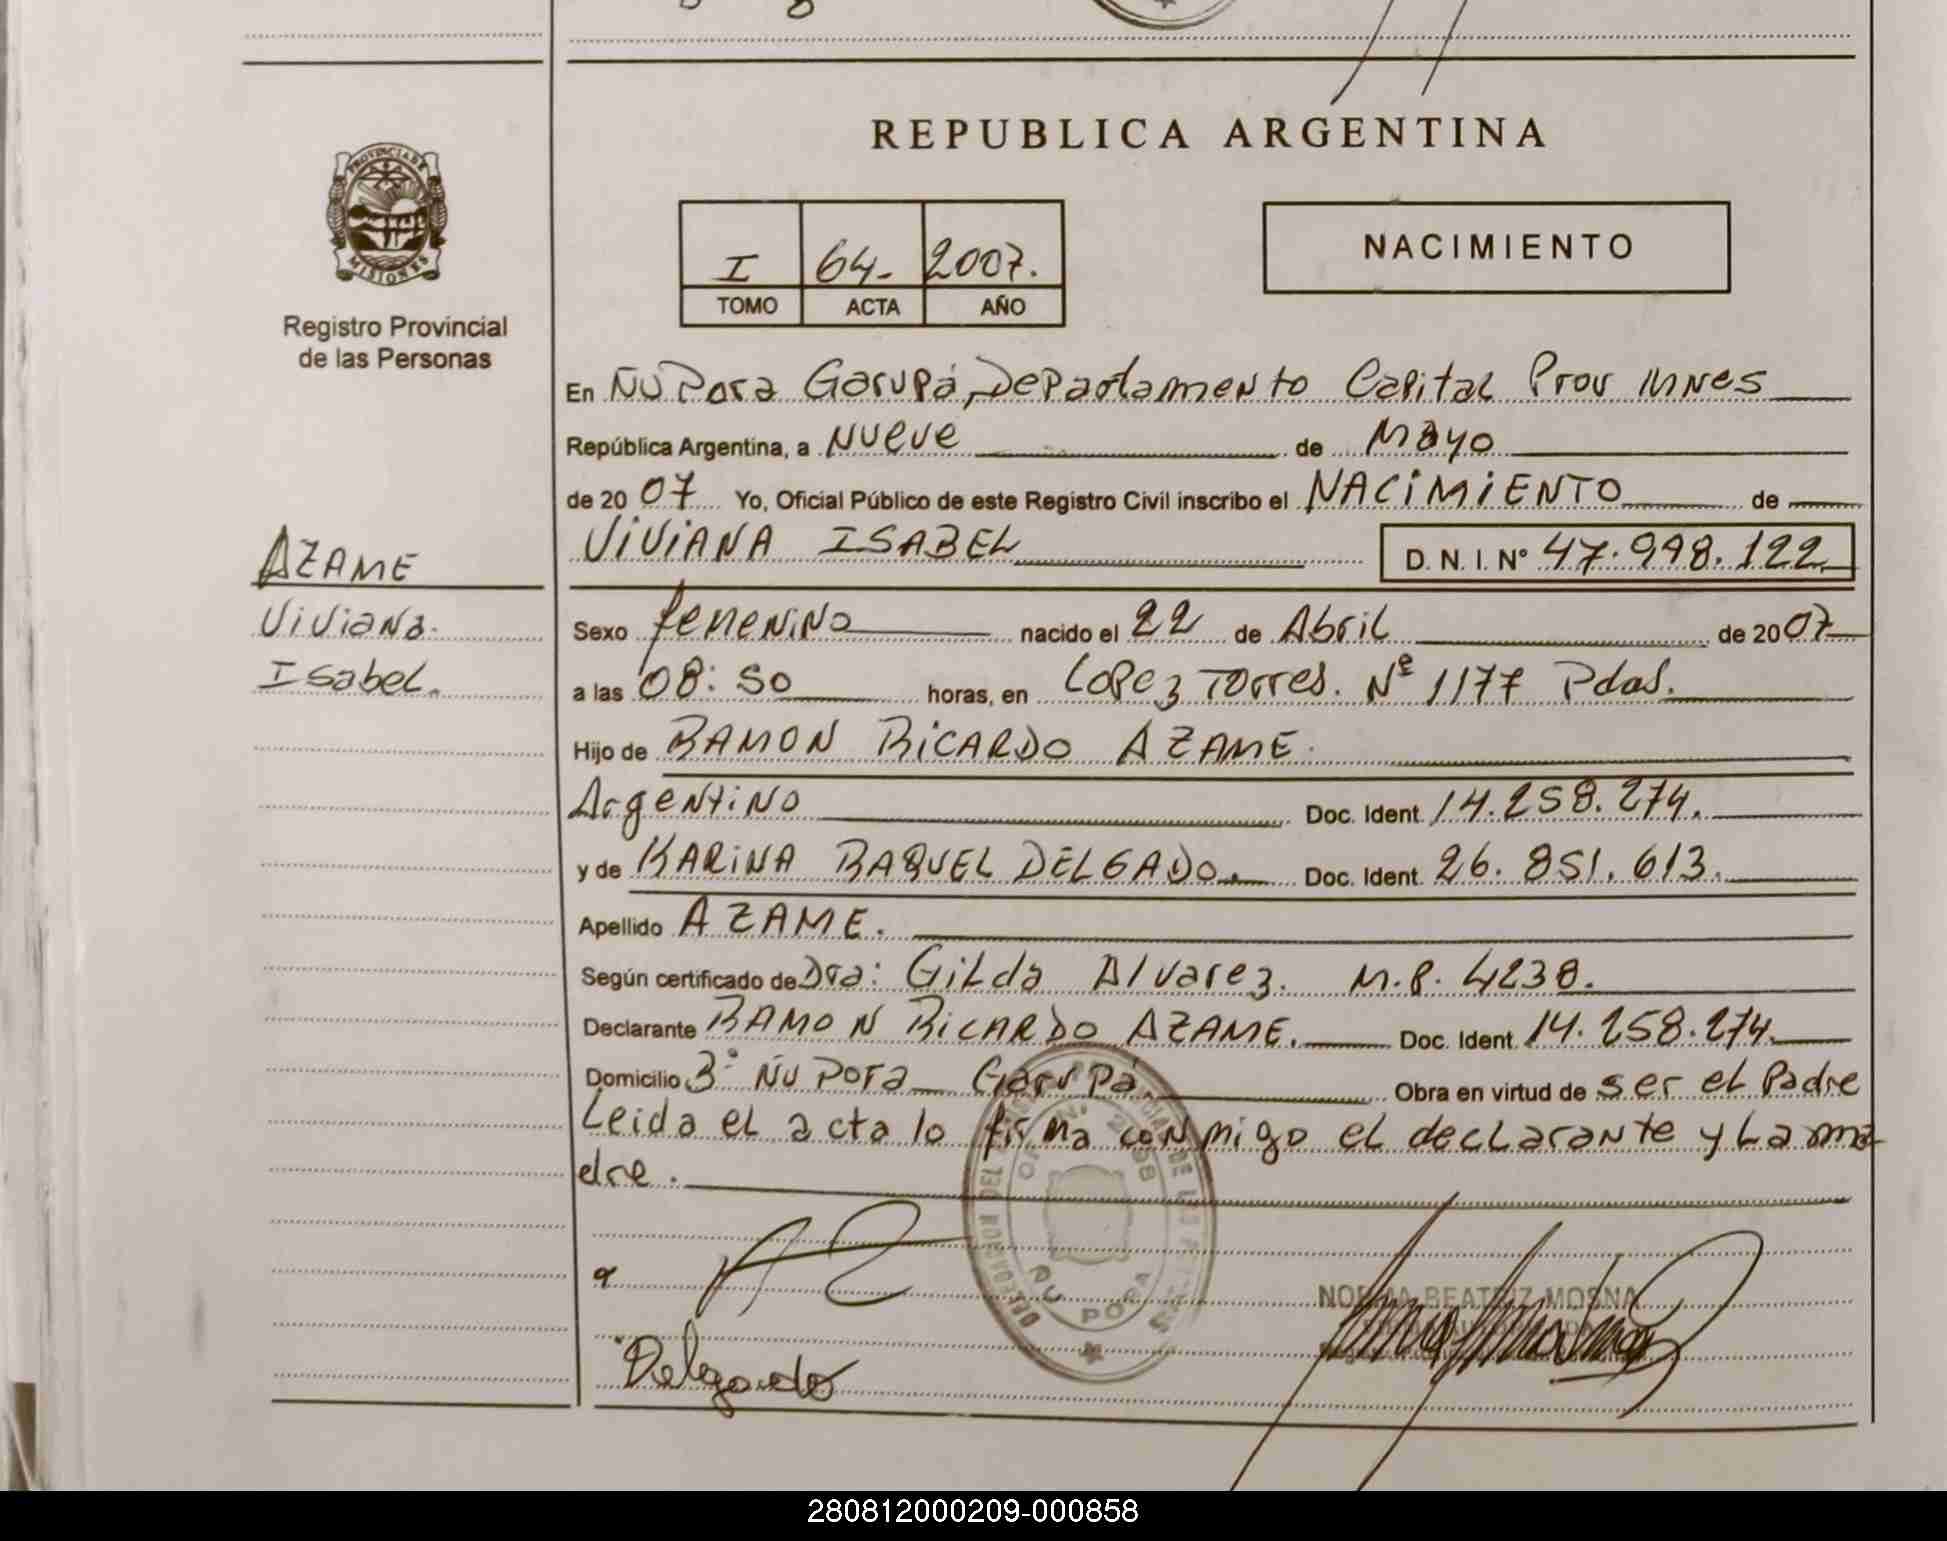 REPUBLICA ARGENTINA
PROVINCIA DE
MISIONES
Registro Provincial
de las Personas
I 64- 2007.
TOMO ACTA AÑO
NACIMIENTO
En Ñu Pora Garupá, Departamento Capital Prov Mnes
República Argentina, a Nueve de Mayo
de 20 07 Yo, Oficial Público de este Registro Civil inscribo el NACIMIENTO de
VIVIANA ISABEL D. N. I. N° 47.998.122
AZAME
Viviana.
Isabel.
Sexo femenino nacido el 22 de Abril de 20 07
a las 08:50 horas, en Lopez Torres. Nº 1177 Pdas.
Hijo de RAMON RICARDO AZAME.
Argentino Doc. Ident. 14.258.274.
y de KARINA RAQUEL DELGADO. Doc. Ident. 26.851.613.
Apellido AZAME.
Según certificado de Dra: Gilda Alvarez. M.P. 4238.
Declarante RAMON RICARDO AZAME. Doc. Ident. 14.258.274
Domicilio 3° Ñu Pora Garupá. Obra en virtud de ser el Padre
Leida el acta lo firma conmigo el declarante y la ma
dre.
NORMA BEATRIZ MOSNA
Delgado
ÑU PORA
280812000209-000858